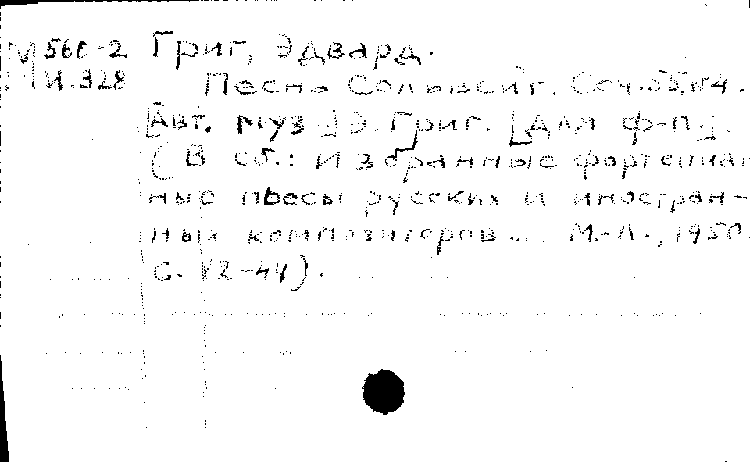 М 560-2 Григ, Эдвард.
И.328 Песнь Сольвейг. Соч.55,№4.
[Авт. муз.] Э. Григ. [Для ф-п].
(В сб.: Избранные фортепиан
ные пьесы русских и иностран-
ных композиторов... М.-Л., 1950.
С. 42-44).